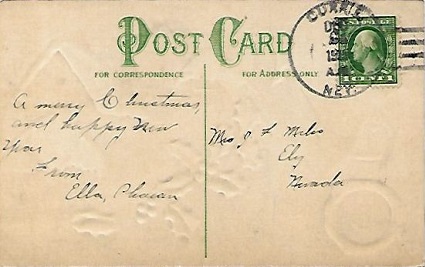 POST CARD
FOR CORRESPONDENCE
FOR ADDRESS ONLY
CURRIE
NEV.
A merry Christmas
and happy New
Year
From
Ella
Mrs J F Miles
Ely
Nevada